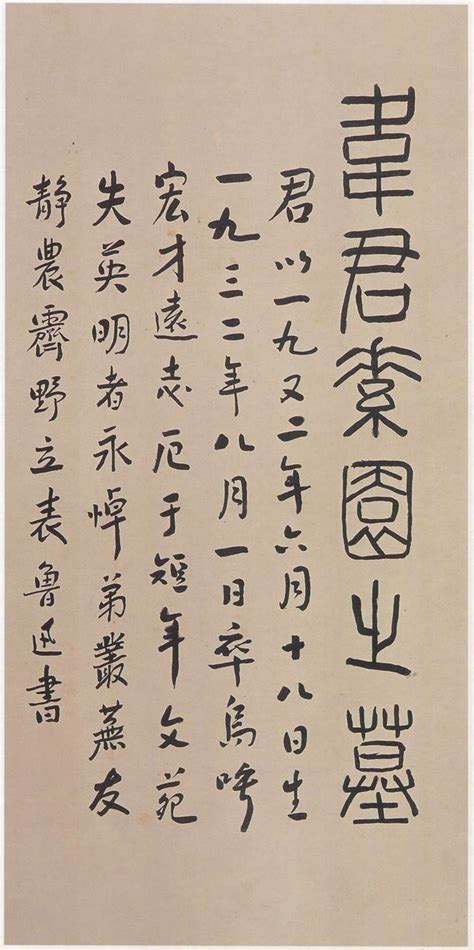 韋君素園之墓
君以一九又二年六月十八日生
一九三二年八月一日卒烏呼
宏才遠志厄于短年文苑
失英明者永悼弟叢蕪友
靜農霽野立表魯迅書